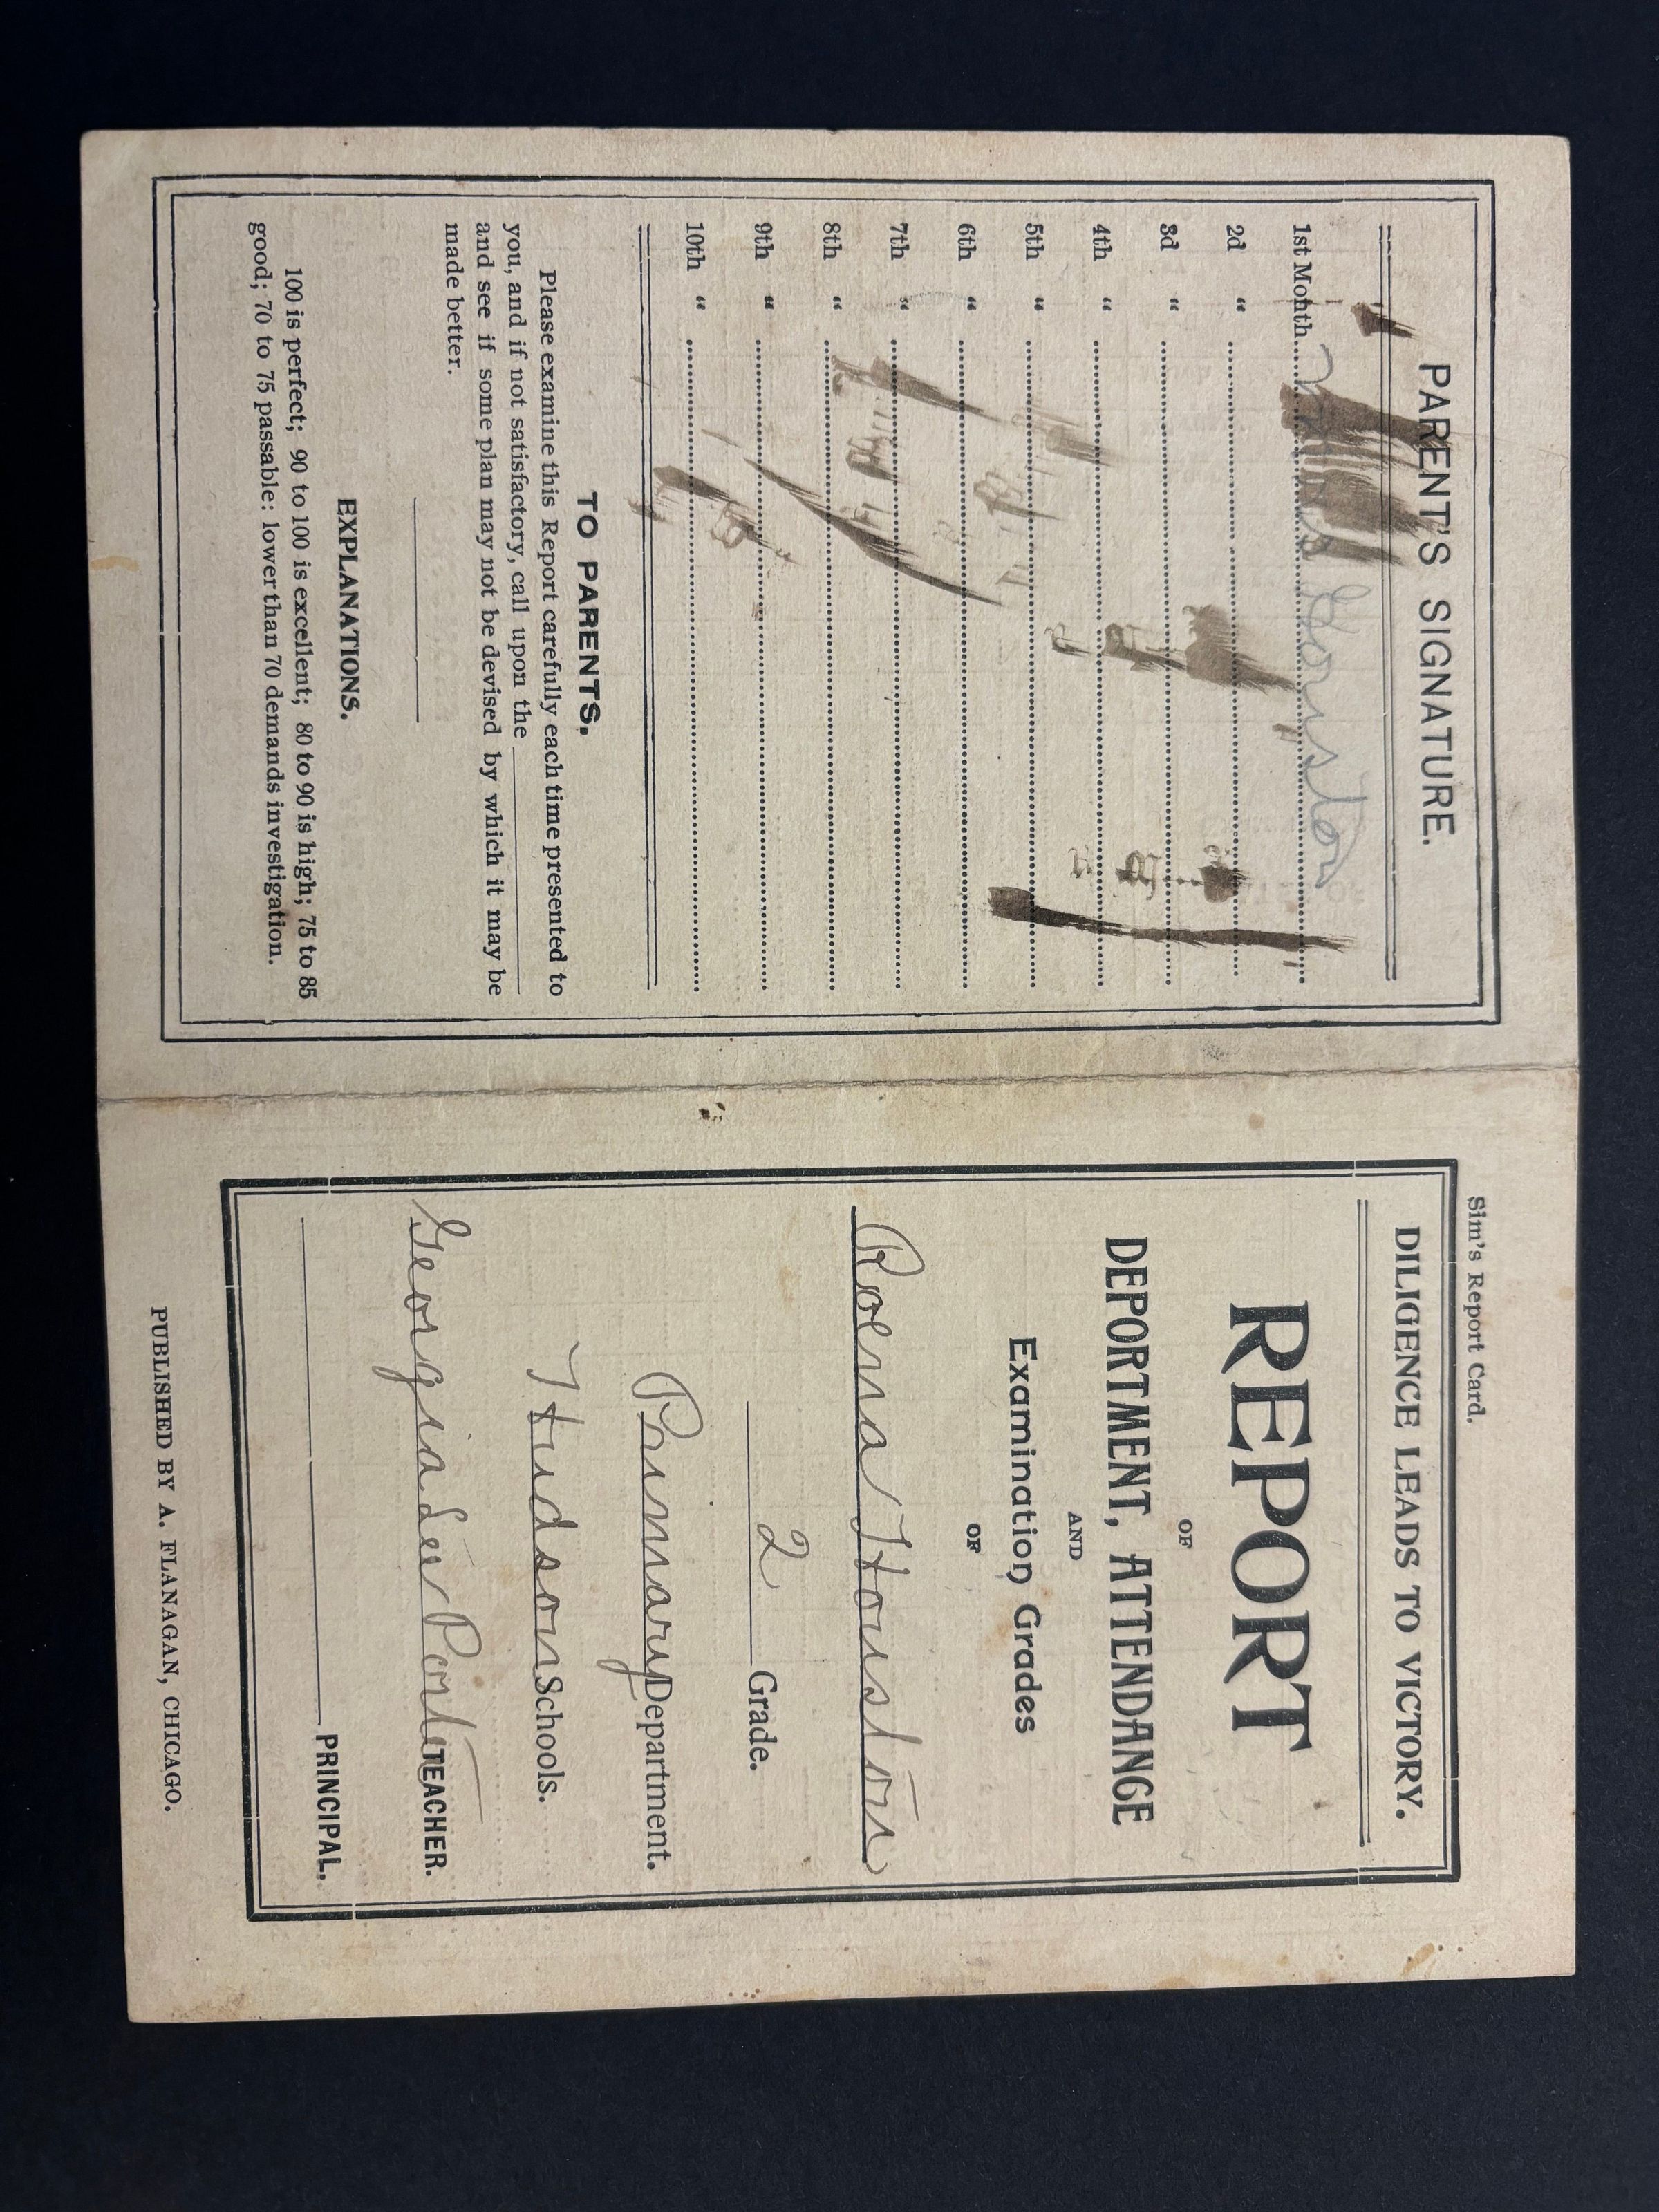 PARENT'S SIGNATURE.
1st Month Houston
2d "
3d "
4th "
5th "
6th "
7th "
8th "
9th "
10th "
TO PARENTS.
Please examine this Report carefully each time presented to
you, and if not satisfactory, call upon the
and see if some plan may not be devised by which it may be
made better.
EXPLANATIONS.
100 is perfect; 90 to 100 is excellent; 80 to 90 is high; 75 to 85
good; 70 to 75 passable: lower than 70 demands investigation.
Sim's Report Card.
DILIGENCE LEADS TO VICTORY.
REPORT
OF
DEPORTMENT, ATTENDANCE
AND
Examination Grades
OF
Roena Houston
2 Grade.
Primary Department.
Hudson Schools.
Georgia Porter TEACHER.
PRINCIPAL.
PUBLISHED BY A. FLANAGAN, CHICAGO.